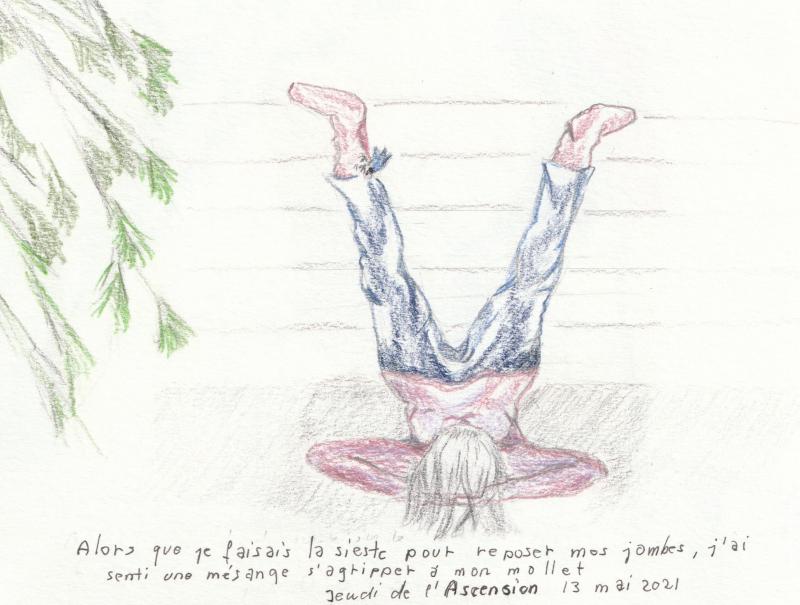 Alors que je faisais la sieste pour reposer mes jambes, j'ai
senti une mésange s'agripper à mon mollet
Jeudi de l'Ascension 13 mai 2021